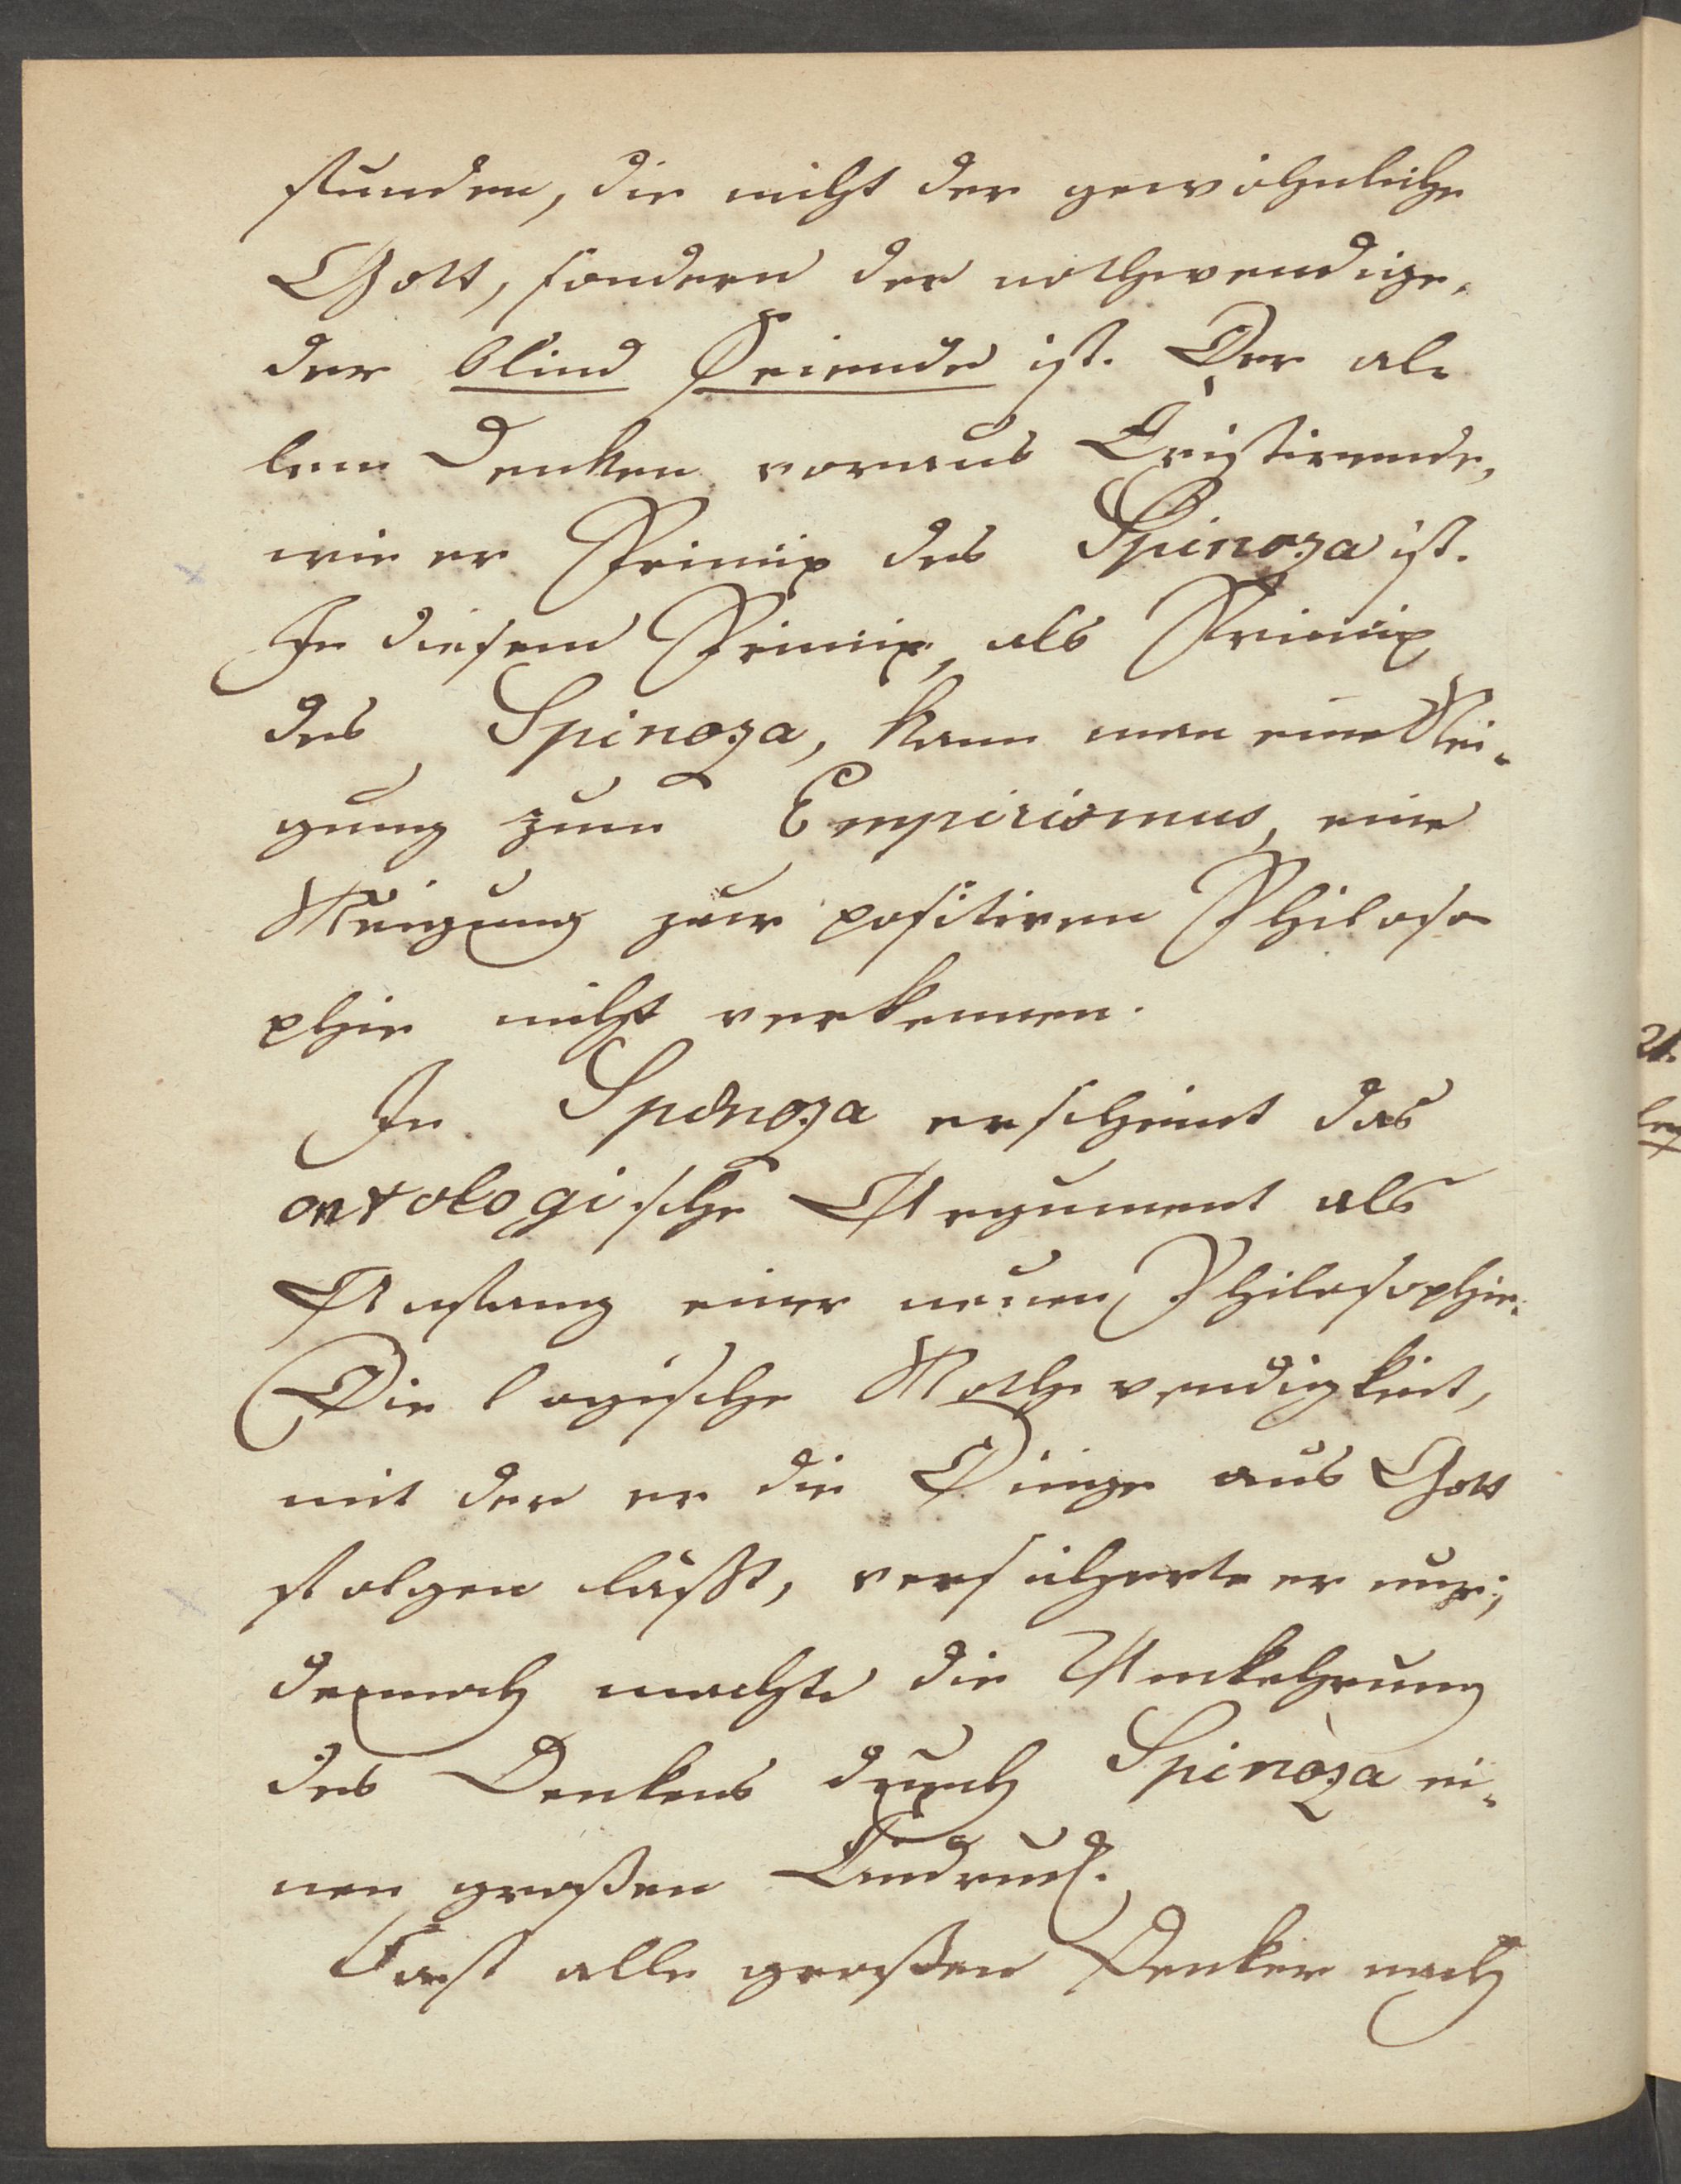 stunden, die nicht der gewöhnliche
Gott, sondern der nothwendige,
der blind Seiende ist. Der al-
lem Denken voraus Existirende,
wie er Prinzip des Spinoza ist.
In diesem Prinzip, als Prinzip
des Spinoza, kann man eine Nei-
gung zum Empirismus, eine
Neigung zur positiven Philoso
phie nicht verkennen.
In Spinoza erscheint das
ontologische Argument als
Anfang einer neuen Philosophie.
Die logische Nothwendigkeit,
mit der er die Dinge aus Gott
folgen läßt, versicherte er nur;
dennoch machte die Umkehrung
des Denkens durch Spinoza ei-
nen großen Eindruck.
Fast alle großen Denker nach